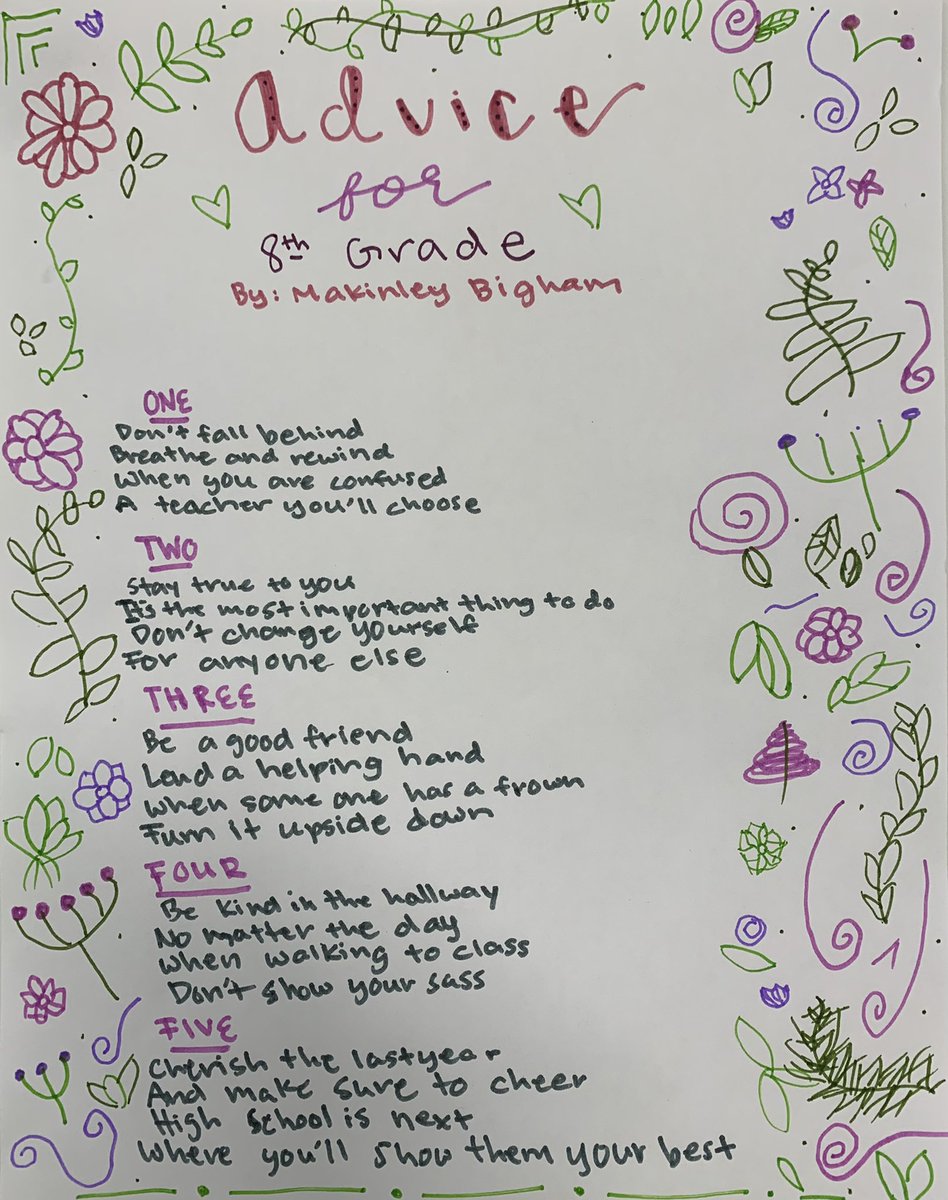 Advice
for
8th Grade
By: Makinley Bigham
ONE
Don't fall behind
Breathe and rewind
When you are confused
A teacher you'll choose
TWO
Stay true to you
It's the most important thing to do
Don't change yourself
For anyone else
THREE
Be a good friend
Lend a helping hand
When some one has a frown
Turn it upside down
FOUR
Be kind in the hallway
No matter the day
When walking to class
Don't show your sass
FIVE
Cherish the last year
And make sure to cheer
High School is next
Where you'll show them your best